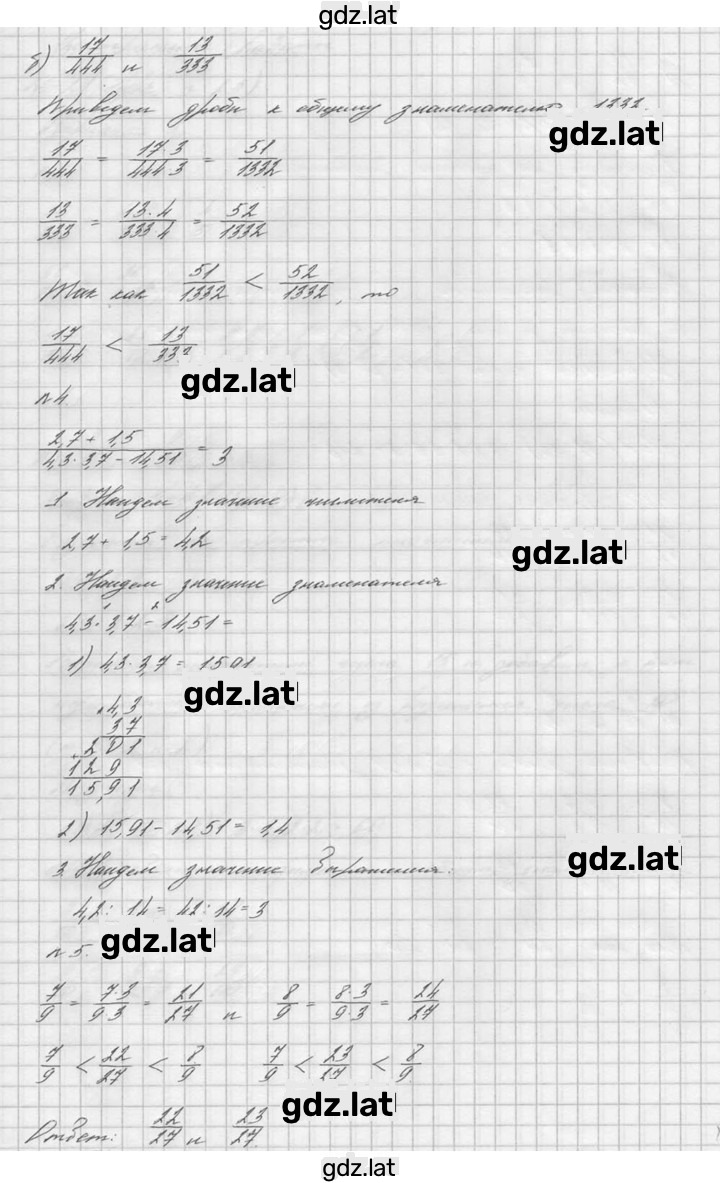 gdz.lat
б) 17/444 и 13/333
Приведем дроби к общему знаменателю 1332.
gdz.lat
17/444 = 17·3/444·3 = 51/1332
13/333 = 13·4/333·4 = 52/1332
Так как 51/1332 < 52/1332, то
17/444 < 13/333
gdz.lat
№4.
2,7 + 1,5/4,3·3,7 – 14,51 = 3
1 Найдем значение числителя
2,7 + 1,5 = 4,2
gdz.lat
2. Найдем значение знаменателя
4,3·3,7 – 14,51 =
1) 4,3·3,7 = 15,91
gdz.lat
4,3
37
201
129
15,91
2) 15,91 – 14,51 = 1,4
gdz.lat
3. Найдем значение выражения:
4,2 : 1,4 = 42 : 14 = 3
gdz.lat
№5.
7/9 = 7·3/9·3 = 21/27 и 8/9 = 8·3/9·3 = 24/27
7/9 < 22/27 < 8/9 7/9 < 23/27 < 8/9
gdz.lat
Ответ: 22/27 и 23/27.
gdz.lat